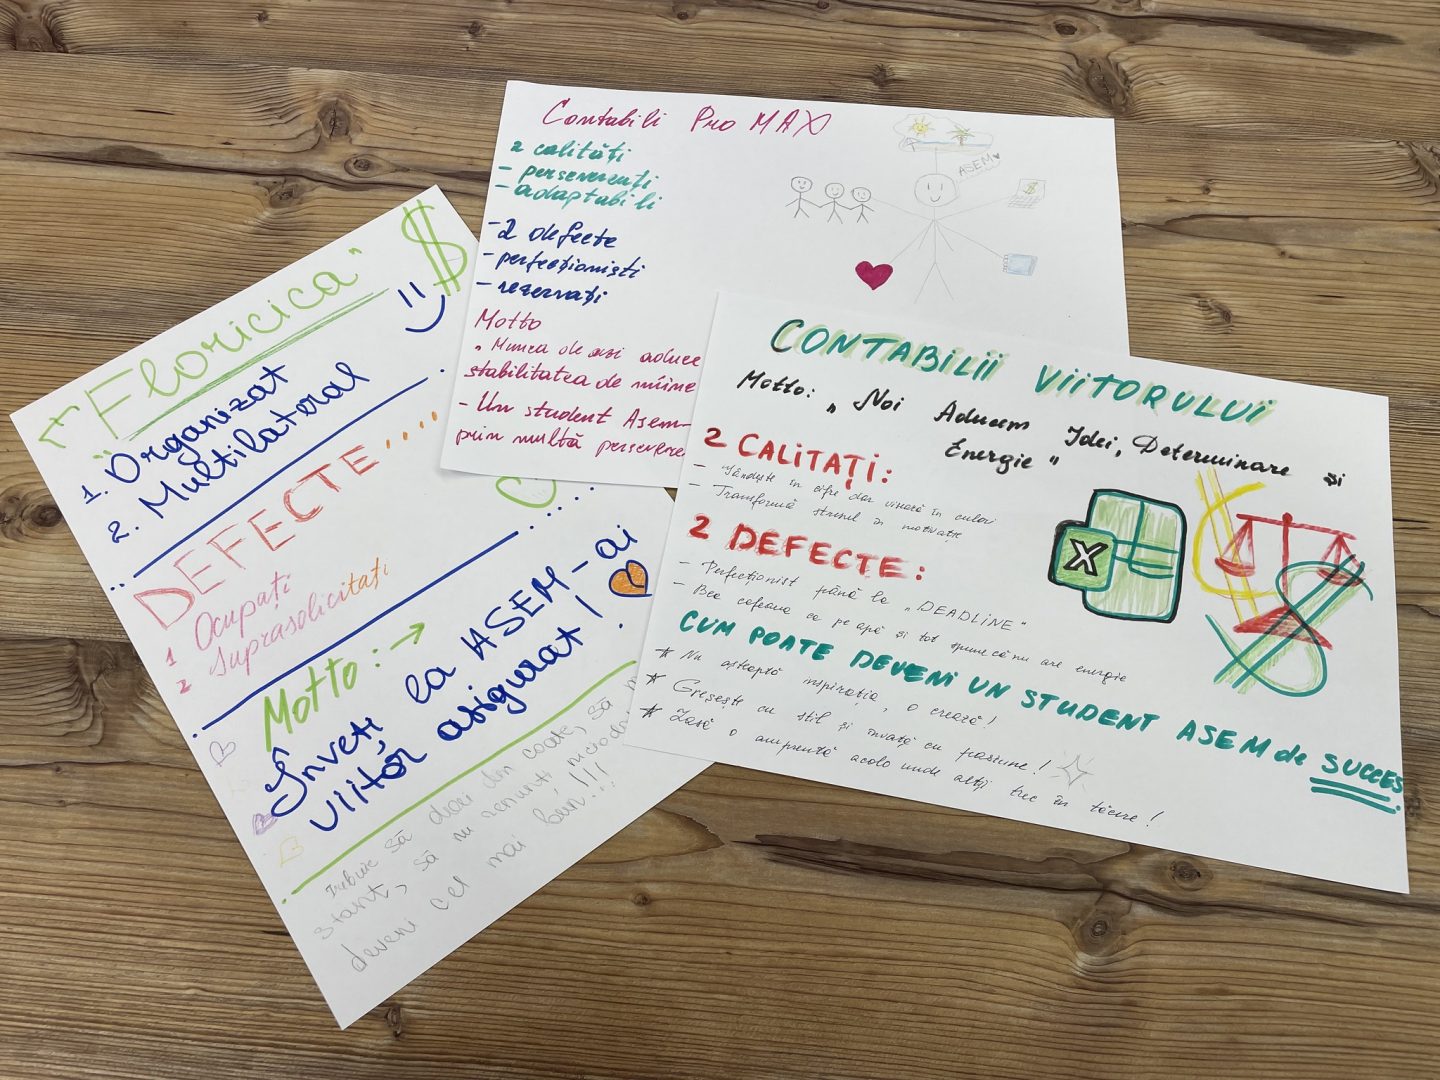 "Floricica"
$
1. Organizat
2. Multilateral
DEFECTE....
1 Ocupați
2 Suprasolicitați
Motto: →
Înveți la ASEM-ai
viitor asigurat!
Trebuie să dai din coate, să
start, să nu renunți niciodat
deveni cel mai bun!!!
Contabili Pro MAX
2 calități
- perseverenți
- adaptabili
- 2 defecte
- perfecționiști
- rezervați
Motto
"Munca de azi aduce
stabilitatea de mîine
- Un student Asem-
prin multă persevere
ASEM
$
CONTABILII VIITORULUI
Motto: "Noi Aducem Idei, Determinare și
Energie"
2 CALITAȚI:
- Gândește în cifre dar visează în culori
- Transformă stresul în motivație
2 DEFECTE:
- Perfecționist până la "DEADLINE"
- Bea cafeaua ca pe apă și tot spune că nu are energie
CUM POATE DEVENI UN STUDENT ASEM de SUCCES
* Nu așteaptă inspirația, o crează!
* Greșește cu stil și învață cu pasiune!
* Lasă o amprentă acolo unde alții trec în tăcere!
X